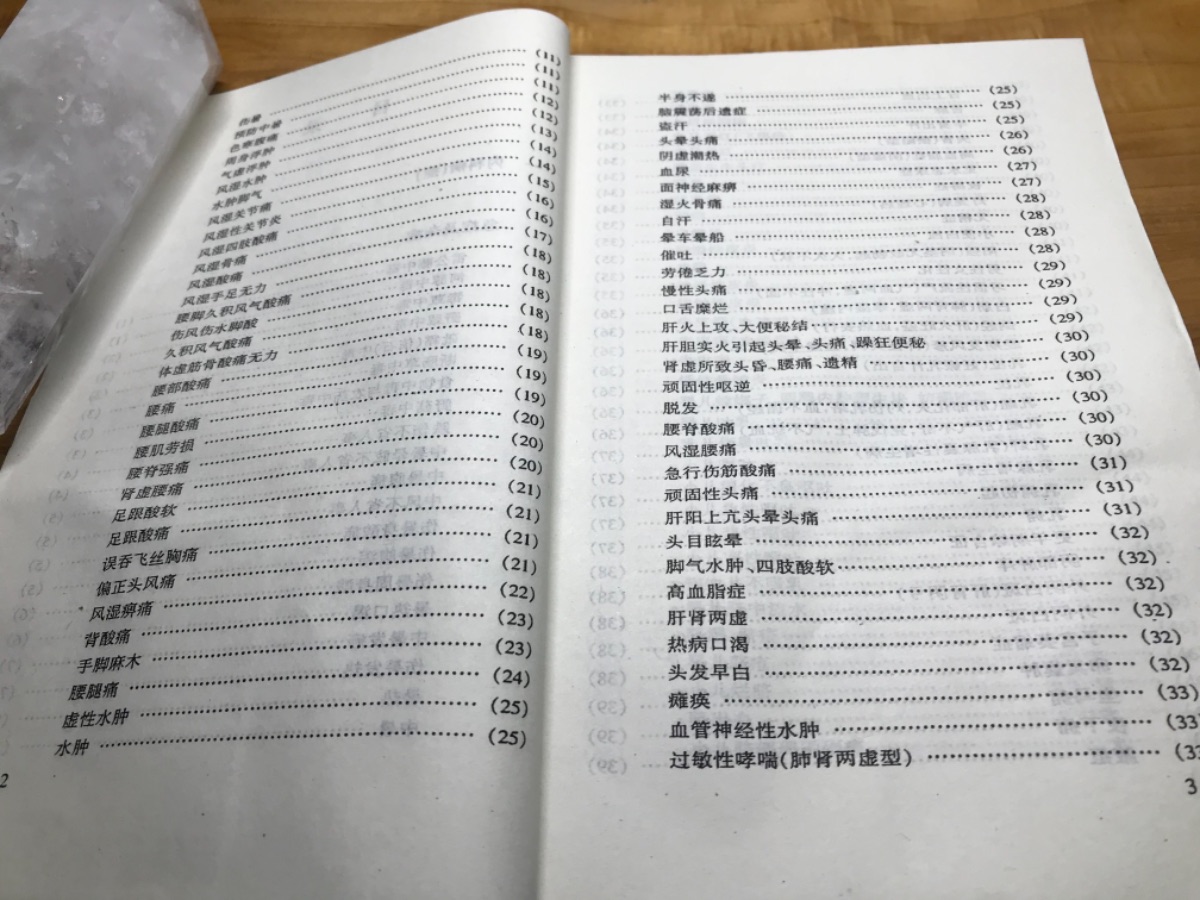 伤暑
预防中暑 (11)
腹痛 (11)
周身浮肿 (11)
气虚浮肿 (12)
风湿水肿 (12)
水肿脚气 (13)
风湿关节痛 (14)
风湿性关节炎 (14)
风湿四肢酸痛 (15)
风湿骨痛 (16)
风湿酸痛 (16)
风湿手足无力 (17)
腰脚久积风气酸痛 (18)
伤风伤水脚酸 (18)
久积风气酸痛 (18)
体虚筋骨酸痛无力 (18)
腰部酸痛 (18)
腰痛 (19)
腰腿酸痛 (19)
腰肌劳损 (20)
腰脊强痛 (20)
肾虚腰痛 (20)
足跟酸软 (21)
足跟酸痛 (21)
误吞飞丝胸痛 (21)
偏正头风痛 (21)
风湿痹痛 (22)
背酸痛 (23)
手脚麻木 (23)
腰腿痛 (24)
虚性水肿 (25)
水肿 (25)
2
半身不遂 (25)
脑震荡后遗症 (25)
盗汗 (25)
头晕头痛 (26)
阴虚潮热 (26)
血尿 (27)
面神经麻痹 (27)
湿火骨痛 (28)
自汗 (28)
晕车晕船 (28)
催吐 (28)
劳倦乏力 (29)
慢性头痛 (29)
口舌糜烂 (29)
肝火上攻、大便秘结 (29)
肝胆实火引起头晕、头痛、躁狂便秘 (30)
肾虚所致头昏、腰痛、遗精 (30)
顽固性呕逆 (30)
脱发 (30)
腰脊酸痛 (30)
风湿腰痛 (30)
急行伤筋酸痛 (31)
顽固性头痛 (31)
肝阳上亢头晕头痛 (31)
头目眩晕 (32)
脚气水肿、四肢酸软 (32)
高血脂症 (32)
肝肾两虚 (32)
热病口渴 (32)
头发早白 (32)
瘫痪 (33)
血管神经性水肿 (33)
过敏性哮喘(肺肾两虚型)
3